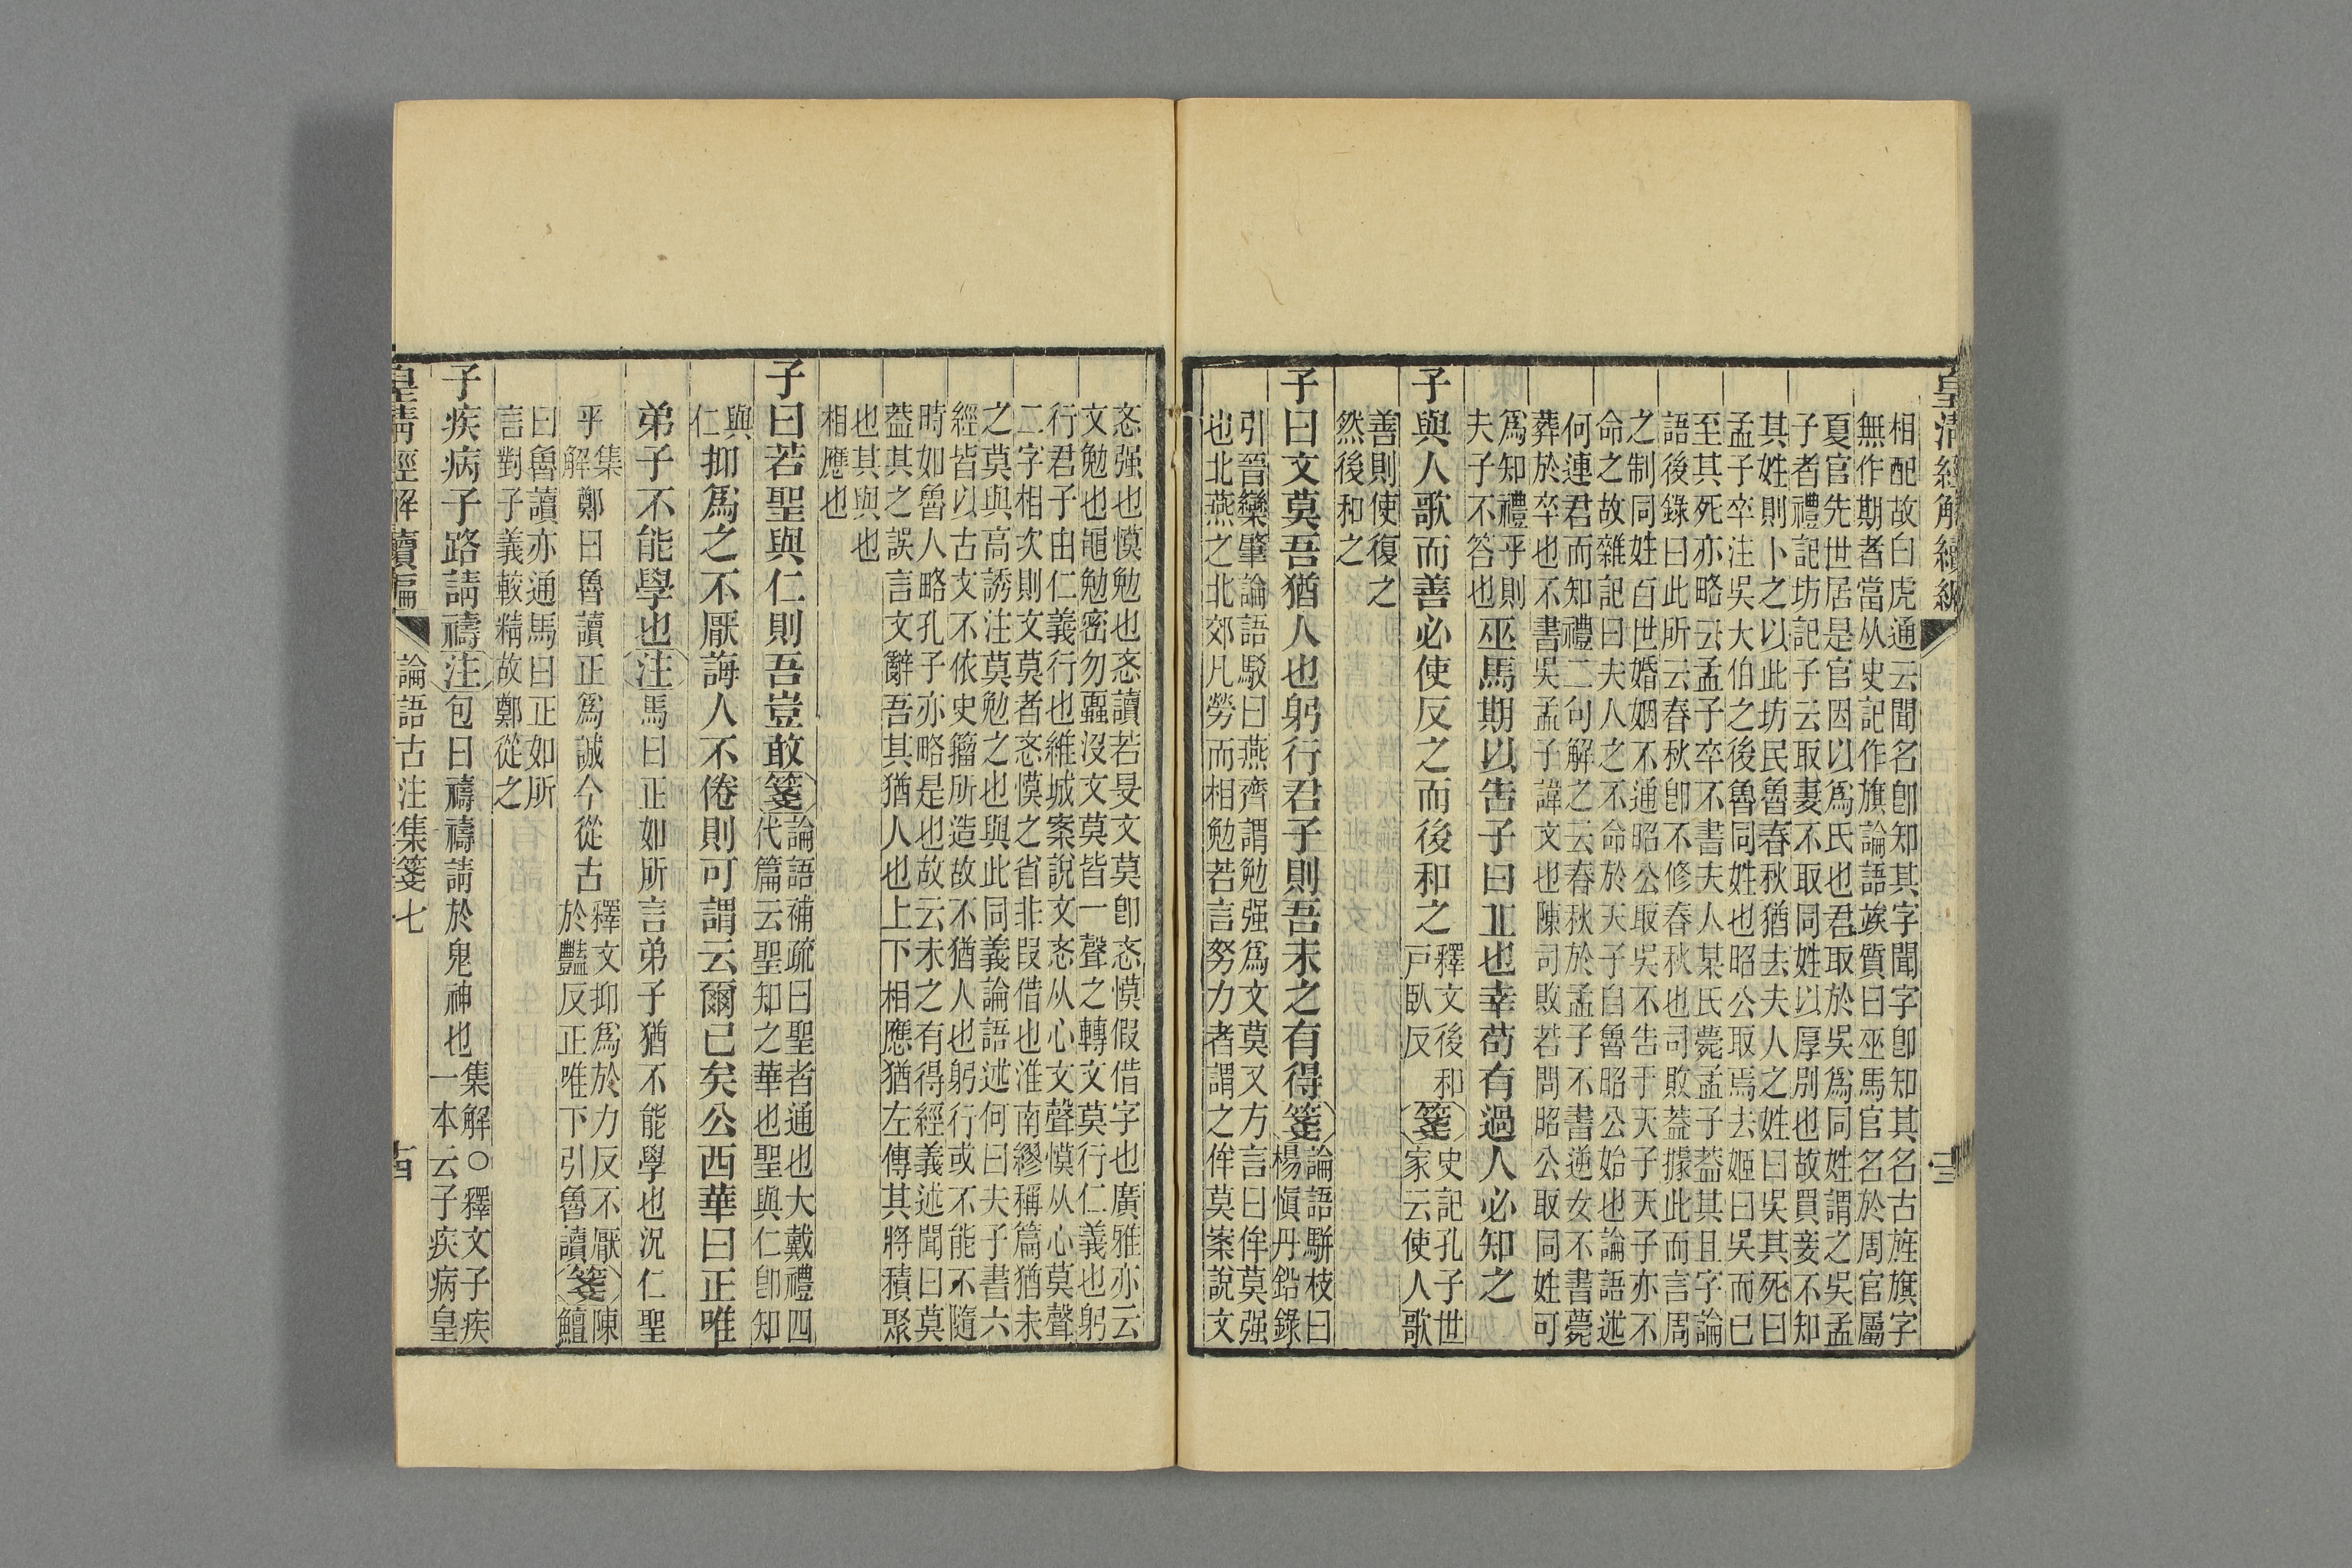 皇清經解續編
相配故白虎通云聞名卽知其字聞字卽知其名古旌旗字
無作期者當从史記作旗論語竢質曰巫馬官名於周官屬
夏官先世居是官因以爲氏也君取於吳爲同姓謂之吳孟
子者禮記坊記子云取妻不取同姓以厚別也故買妾不知
其姓則卜之以此坊民魯春秋猶去夫人之姓曰吳其死曰
孟子卒注吳大伯之後魯同姓也昭公取焉去姬曰吳而已
至其死亦略云孟子卒不書夫人某氏薨孟子葢其且字論
語後錄曰此所云春秋卽不修春秋也司敗葢據此而言周
之制同姓百世婚姻不通昭公取吳不告于天子天子亦不
命之故雜記曰夫人之不命於天子自魯昭公始也論語述
何連君而知禮二句解之云春秋於孟子不書逆女不書薨
葬於卒也不書吳孟子諱文也陳司敗若問昭公取同姓可
爲知禮乎則
夫子不答也
巫馬期以告子曰丘也幸苟有過人必知之
子與人歌而善必使反之而後和之
釋文後和
戶臥反
箋
史記孔子世
家云使人歌
善則使復之
然後和之
子曰文莫吾猶人也躬行君子則吾未之有得
箋
論語駢枝曰
楊愼丹鉛錄
引晉欒肇論語駁曰燕齊謂勉强爲文莫又方言曰侔莫强
也北燕之北郊凡勞而相勉若言努力者謂之侔莫案說文
忞强也慔勉也忞讀若旻文莫卽忞慔假借字也廣雅亦云
文勉也黽勉密勿蠠沒文莫皆一聲之轉文莫行仁義也躬
行君子由仁義行也維城案說文忞从心文聲慔从心莫聲
二字相次則文莫者忞慔之省非叚借也淮南繆稱篇猶未
之莫與高誘注莫勉之也與此同義論語述何曰夫子書六
經皆以古文不依史籀所造故不猶人也躬行或不能不隨
時如魯人略孔子亦略是也故云未之有得經義述聞曰莫
葢其之誤言文辭吾其猶人也上下相應猶左傳其將積聚
也其與也
相應也
子曰若聖與仁則吾豈敢
箋
論語補疏曰聖者通也大戴禮四
代篇云聖知之華也聖與仁卽知
與
仁
抑爲之不厭誨人不倦則可謂云爾已矣公西華曰正唯
弟子不能學也
注
馬曰正如所言弟子猶不能學也況仁聖
乎
集
解
鄭曰魯讀正爲誠今從古
釋文抑爲於力反不厭
於豔反正唯下引魯讀
箋
陳
鱣
曰魯讀亦通馬曰正如所
言對子義較精故鄭從之
子疾病子路請禱
注
包曰禱禱請於鬼神也
集解○釋文子疾
一本云子疾病皇
皇清經解續編
論語古注集箋七